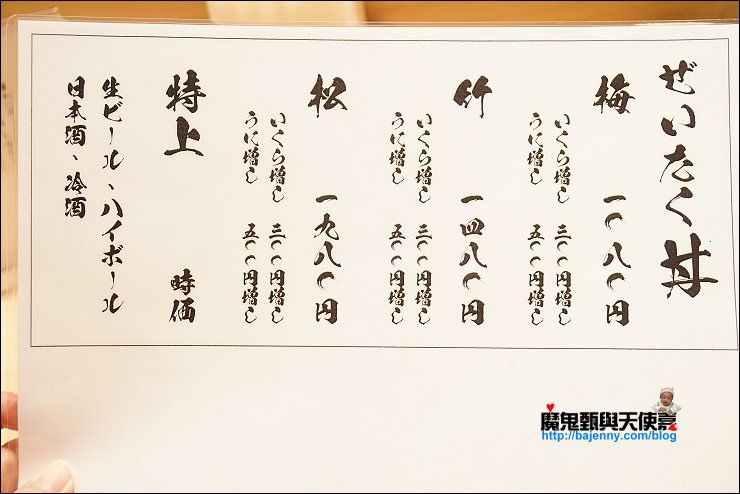 ぜいたく丼
梅 一〇八〇円
いくら増し 三〇〇円増し
うに増し 五〇〇円増し
竹 一四八〇円
いくら増し 三〇〇円増し
うに増し 五〇〇円増し
松 一九八〇円
いくら増し 三〇〇円増し
うに増し 五〇〇円増し
特上 時価
生ビール、ハイボール
日本酒、冷酒
魔鬼甄與天使嘉
http://bajenny.com/blog